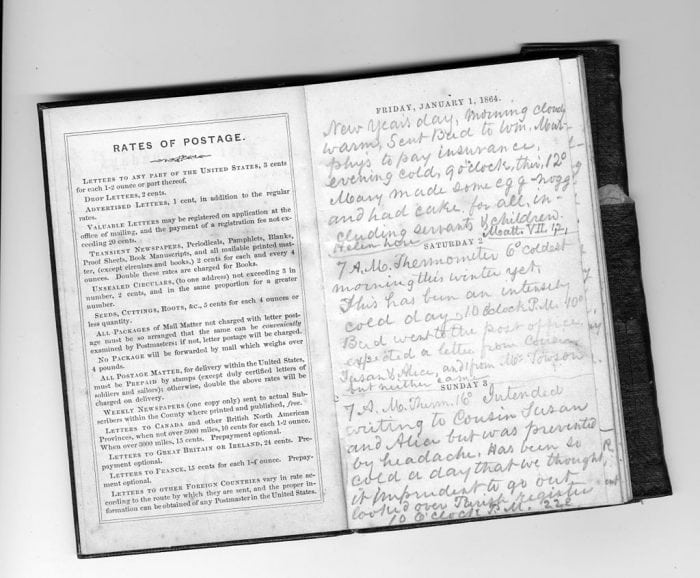 RATES OF POSTAGE.
LETTERS TO ANY PART OF THE UNITED STATES, 3 cents
for each 1-2 ounce or part thereof.
DROP LETTERS, 2 cents.
ADVERTISED LETTERS, 1 cent, in addition to the regular
rates.
VALUABLE LETTERS may be registered on application at the
office of mailing, and the payment of a registration fee not ex-
ceeding 20 cents.
TRANSIENT NEWSPAPERS, Periodicals, Pamphlets, Blanks,
Proof Sheets, Book Manuscripts, and all mailable printed mat-
ter, (except circulars and books,) 2 cents for each and every 4
ounces. Double these rates are charged for Books.
UNSEALED CIRCULARS, (to one address) not exceeding 3 in
number, 2 cents, and in the same proportion for a greater
number.
SEEDS, CUTTINGS, ROOTS, &c., 5 cents for each 4 ounces or
less quantity.
ALL PACKAGES of Mail Matter not charged with letter post-
age must be so arranged that the same can be conveniently
examined by Postmasters; if not, letter postage will be charged.
NO PACKAGE will be forwarded by mail which weighs over
4 pounds.
ALL POSTAGE MATTER, for delivery within the United States,
must be PREPAID by stamps (except duly certified letters of
soldiers and sailors); otherwise, double the above rates will be
charged on delivery.
WEEKLY NEWSPAPERS (one copy only) sent to actual Sub-
scribers within the County where printed and published, free.
LETTERS TO CANADA and other British North American
Provinces, when not over 3000 miles, 10 cents for each 1-2 ounce.
When over 3000 miles, 15 cents. Prepayment optional.
LETTERS TO GREAT BRITAIN OR IRELAND, 24 cents. Pre-
payment optional.
LETTERS TO FRANCE, 15 cents for each 1-4 ounce. Prepay-
ment optional.
LETTERS TO OTHER FOREIGN COUNTRIES vary in rate ac-
cording to the route by which they are sent, and the proper in-
formation can be obtained of any Postmaster in the United States.
FRIDAY, JANUARY 1, 1864.
New Years day, morning cloudy
warm, Sent Bud to Wm. Mur-
phys to pay insurance,
evening cold, 9 o'clock, ther, 12°
Mary made some egg-nogg
and had cake for all, in-
cluding servants & children.
Helen here Matt. VII. 12,
SATURDAY 2
7 A.M. Thermometer 6° coldest
morning this winter yet,
This has been an intensely
cold day, 10 Oclock P.M. 10°
Bud went to the post office,
expected a letter from Cousin
Susan & Alice, and from Mr Towson
but neither came
SUNDAY 3
7 A.M. Therm. 16° Intended
writing to Cousin Susan
and Alice but was prevented
by headache, Has been so
cold a day that we thought
it imprudent to go out
looked over Parish register
10 O'clock P.M. 22°